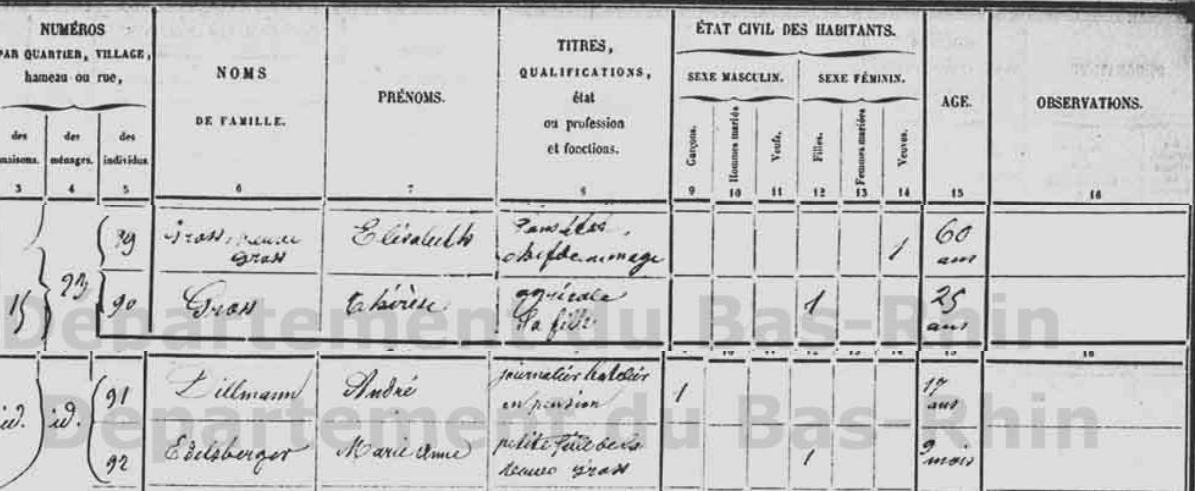 NUMÉROS
PAR QUARTIER, VILLAGE,
hameau ou rue,
des maisons.
des ménages.
des individus
NOMS
DE FAMILLE.
PRÉNOMS.
TITRES,
QUALIFICATIONS,
état
ou profession
et fonctions.
ÉTAT CIVIL DES HABITANTS.
SEXE MASCULIN.
SEXE FÉMININ.
Garçons.
Hommes mariés
Veufs.
Filles.
Femmes mariées
Veuves.
AGE.
OBSERVATIONS.
3 4 5 6 7 8 9 10 11 12 13 14 15 16
15 23
Gross
Gross
Elisabeth
Sans état,
chef de menage
1
60
ans
90 Gross Thérèse
sa fille
1
25
ans
id. id. 91 Dillmann André
journalier
en pension
1
17
ans
92 Edelsberger Marie Anne
petite fille de la
Gross
1
9
mois
Département du Bas-Rhin
Département du Bas-Rhin